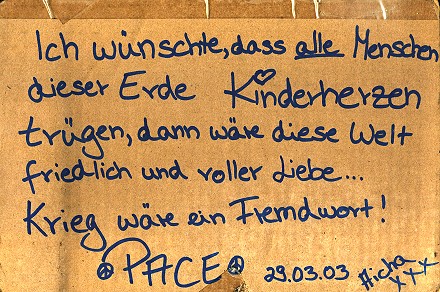 Ich wünschte, dass alle Menschen
dieser Erde Kinderherzen
trügen, dann wäre diese Welt
friedlich und voller Liebe...
Krieg wäre ein Fremdwort!
PACE 29.03.03 Micha xxx